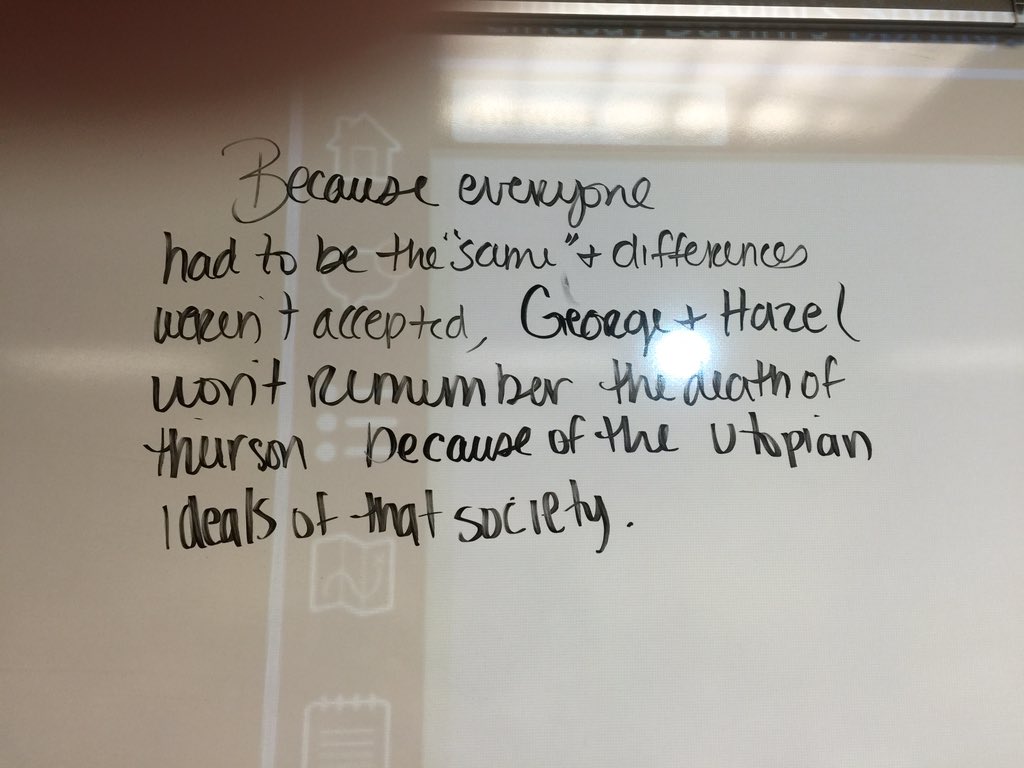 Because everyone
had to be the "same" + differences
weren't accepted, George + Hazel
won't remember the death of
thurson because of the utopian
ideals of that society.